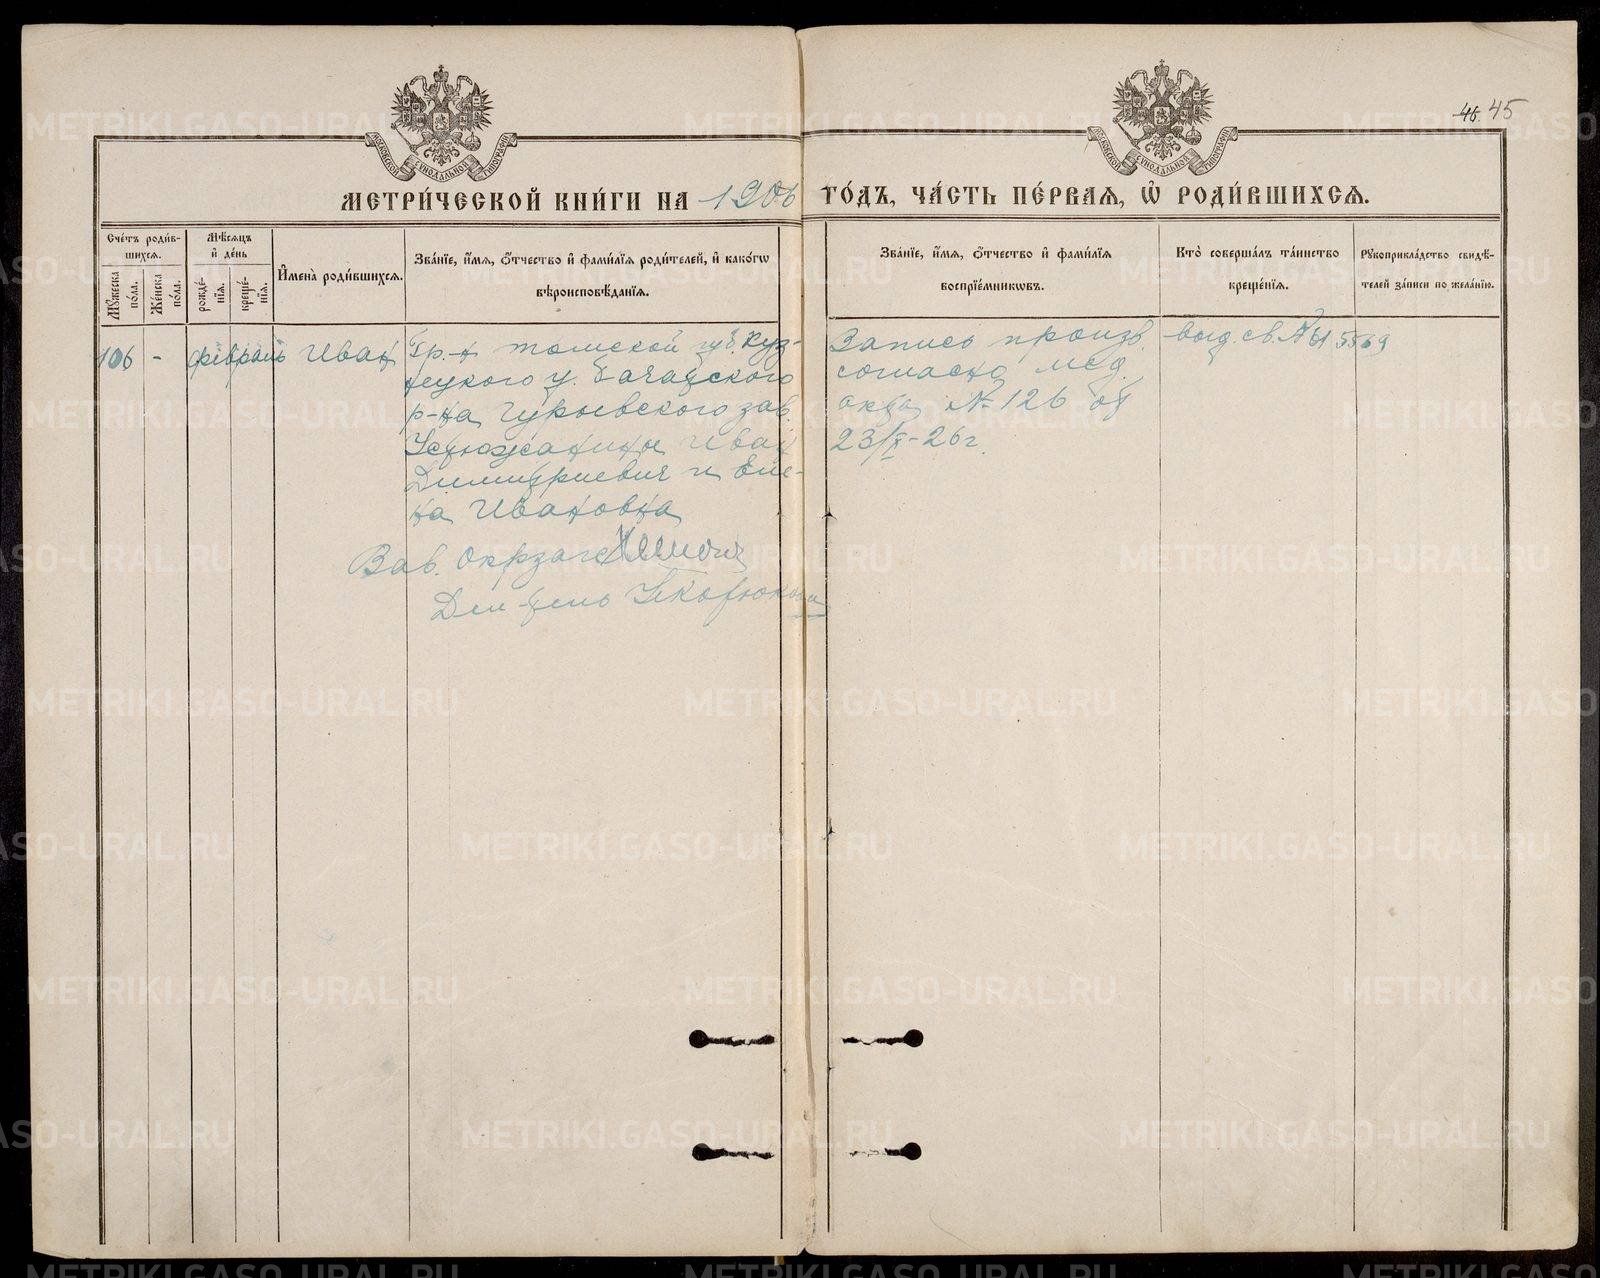 46. 45
МОСКОВСКОЙ СѴНОДАЛЬНОЙ ТИПОГРАФІИ
МОСКОВСКОЙ СѴНОДАЛЬНОЙ ТИПОГРАФІИ
МЕТРИ́ЧЕСКОЙ КНИ́ГИ НА 1906 ГО́ДЪ, ЧА́СТЬ ПЕ́РВАЯ, Ѽ РОДИ́ВШИХСЯ.
Сче́тъ роди́в-
шихся.
Му́жеска по́ла.
Же́нска по́ла.
Мѣ́сяцъ
и҆ де́нь
рожде́-
нїя.
креще́-
нїя.
И҆мена̀ роди́вшихся.
Зва́нїе, и҆́мя, ѻ҆́тчество и҆ фами́лїя роди́телей, и҆ како́гѡ
вѣроисповѣ́данїя.
Зва́нїе, и҆́мя, ѻ҆́тчество и҆ фами́лїя
воспрїе́мниковъ.
Кто̀ соверша́лъ та́инство
креще́нїя.
Рꙋкоприкла́дство свидѣ́-
телей за́писи по жела́нїю.
106 - февраль Иван
Гр-н Томской губ. Куз-
нецкого у. Бачатского
р-на Гурьевского зав.
Устюжанины Иван
Димитриевич и Еле-
на Ивановна
Зав. Окрзагс
Дел-тель
Запись произв.
согласно мед.
акта № 126 от
23/X-26 г.
выд. св. № 615569
METRIKI.GASO-URAL.RU